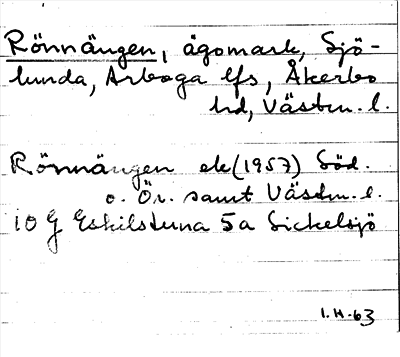 Rönnängen, ägomark, Sjö-
lunda, Arboga lfs, Åkerbo
hd, Västm. l.
Rönnängen ek (1957) Söd.
o. Ör. samt Västm. l.
10 G Eskilstuna 5a Sickelsjö
I.H-63